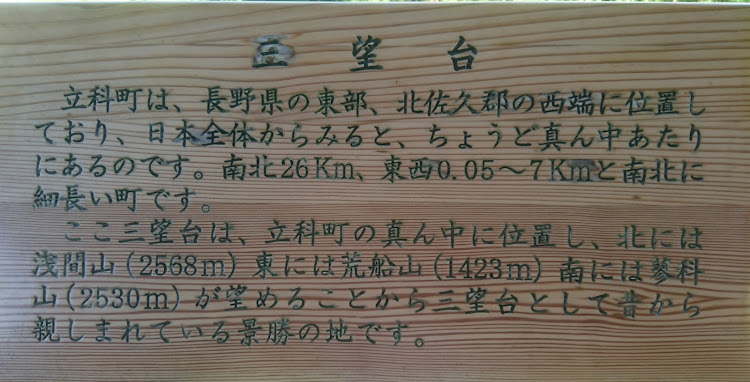 三望台
立科町は、長野県の東部、北佐久郡の西端に位置し
ており、日本全体からみると、ちょうど真ん中あたり
にあるのです。南北26Km、東西0.05～7Kmと南北に
細長い町です。
ここ三望台は、立科町の真ん中に位置し、北には
浅間山(2568m)東には荒船山(1423m)南には蓼科
山(2530m)が望めることから三望台として昔から
親しまれている景勝の地です。